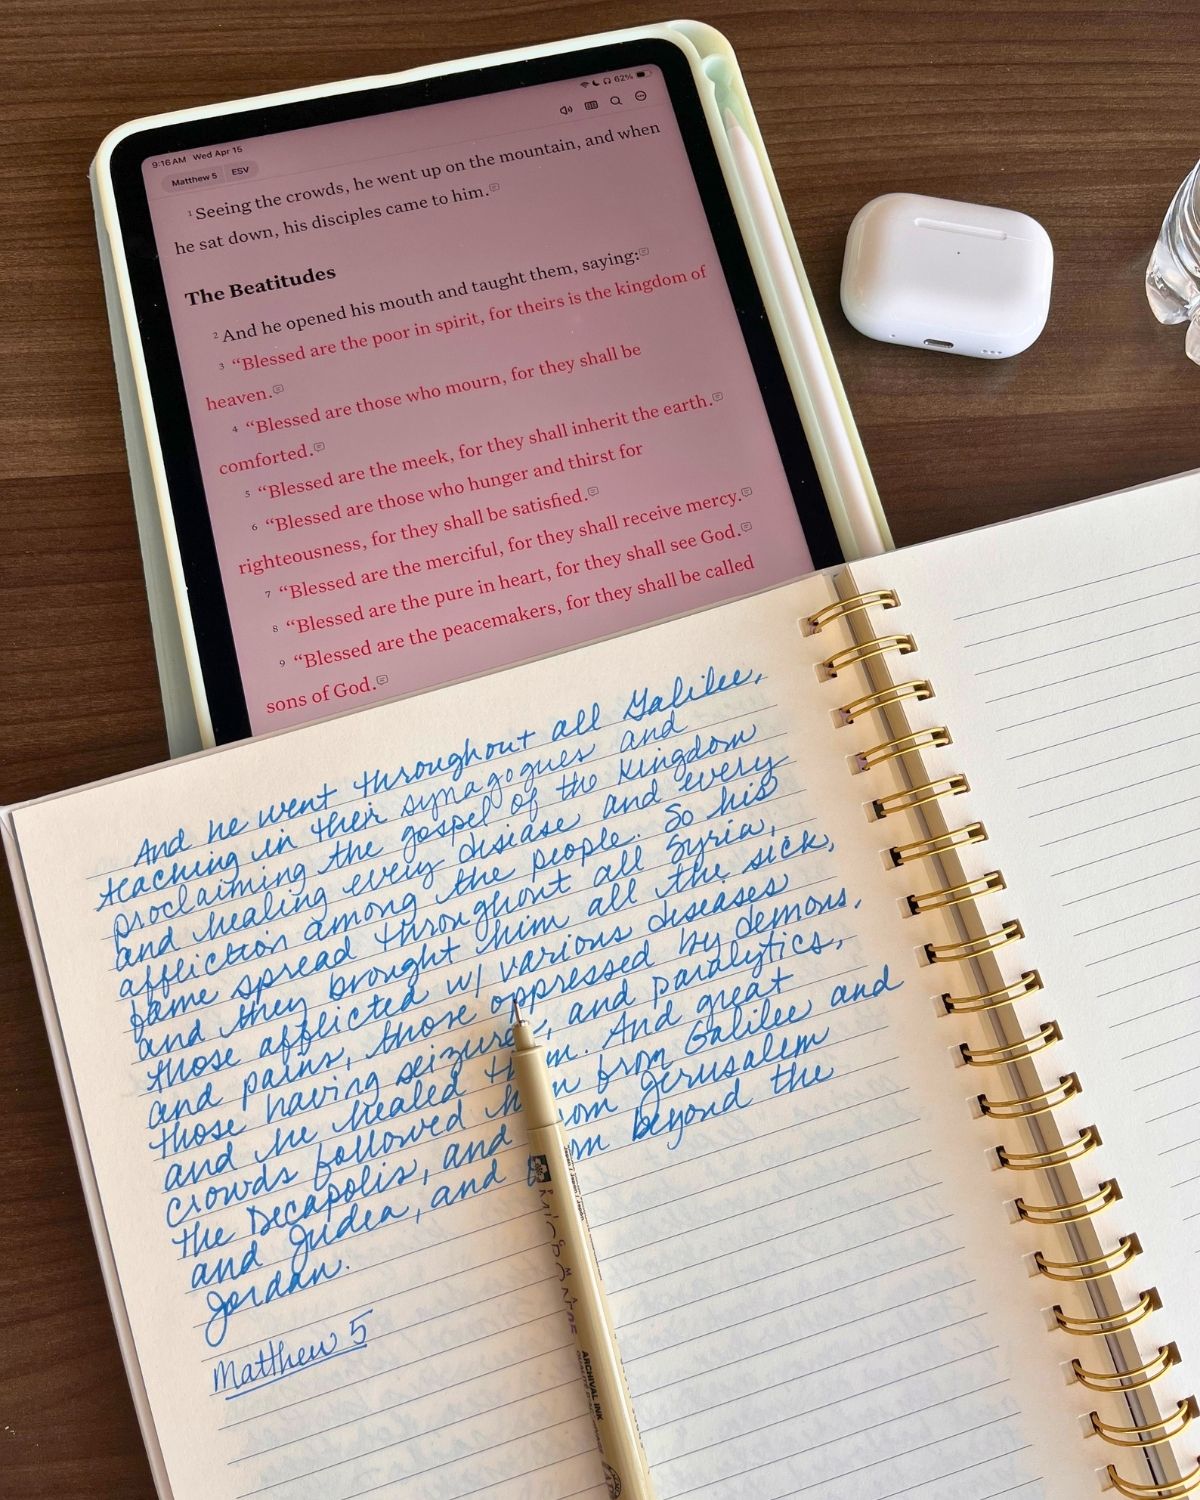 9:16 AM Wed Apr 15
62%
Matthew 5 ESV
1 Seeing the crowds, he went up on the mountain, and when
he sat down, his disciples came to him.
The Beatitudes
2 And he opened his mouth and taught them, saying:
3 “Blessed are the poor in spirit, for theirs is the kingdom of
heaven.
4 “Blessed are those who mourn, for they shall be
comforted.
5 “Blessed are the meek, for they shall inherit the earth.
6 “Blessed are those who hunger and thirst for
righteousness, for they shall be satisfied.
7 “Blessed are the merciful, for they shall receive mercy.
8 “Blessed are the pure in heart, for they shall see God.
9 “Blessed are the peacemakers, for they shall be called
sons of God.
And he went throughout all Galilee,
teaching in their synagogues and
proclaiming the gospel of the kingdom
and healing every disease and every
affliction among the people. So his
fame spread throughout all Syria,
and they brought him all the sick,
those afflicted w/ various diseases
and pains, those oppressed by demons,
those having seizures, and paralytics,
and he healed them. And great
crowds followed him from Galilee and
the Decapolis, and from Jerusalem
and Judea, and from beyond the
Jordan.
Matthew 5
MICRON
ARCHIVAL INK